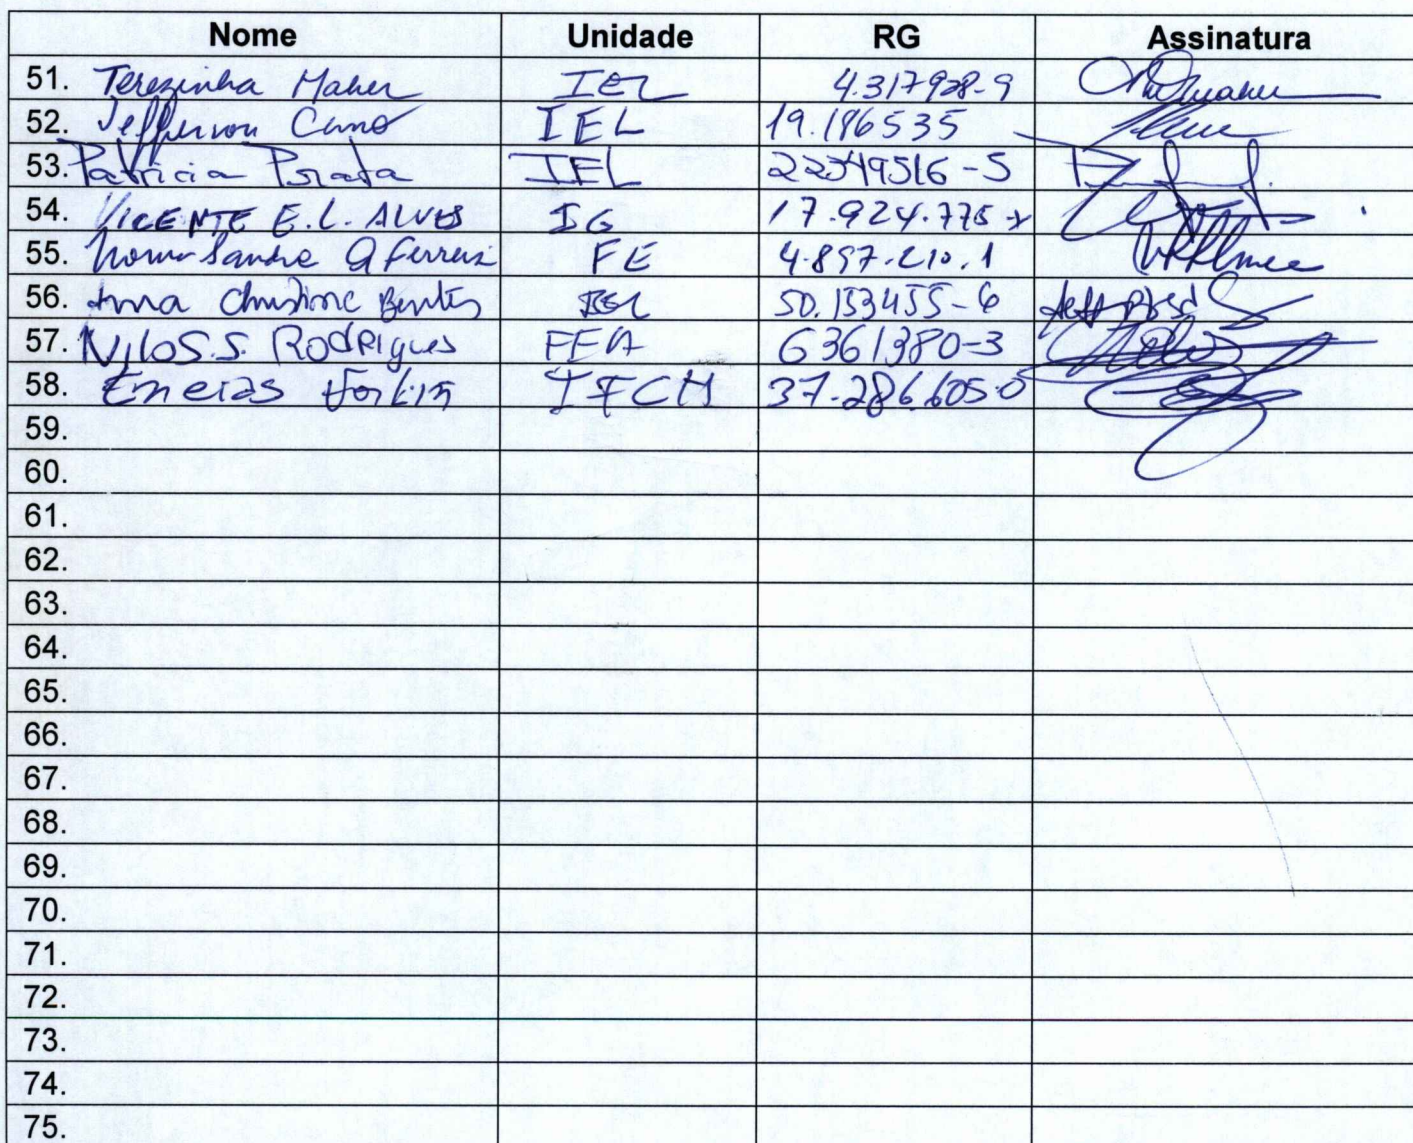 Nome Unidade RG Assinatura
51. Terezinha Maher IEL 4.317928-9
52. Jefferson Cano IEL 19.186535
53. Patricia Prata IEL 22549516-5
54. VICENTE E. L. ALVES IG 17.924.775-x
55. Sandra Ferreira FE 4.897.210.1
56. Anna Christina Bentes IEL 50.153455-6
57. Nilo S. S. Rodrigues FEA 6361380-3
58. Eneias IFCH 37.286.6050
59.
60.
61.
62.
63.
64.
65.
66.
67.
68.
69.
70.
71.
72.
73.
74.
75.